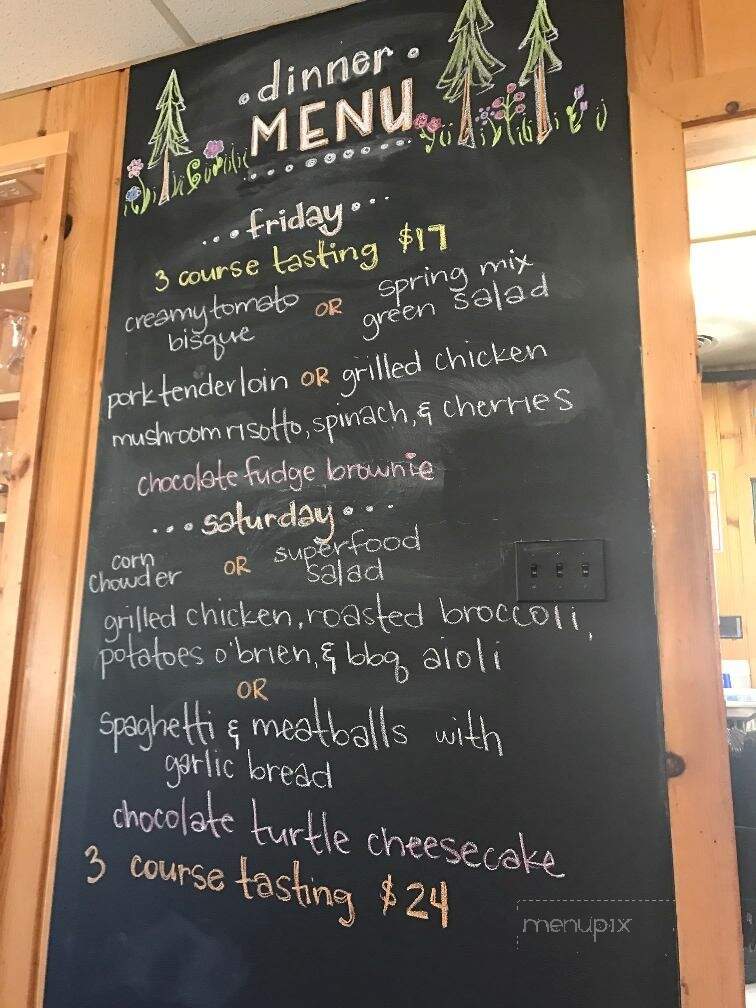 dinner
MENU
...friday...
3 course tasting $17
creamy tomato bisque OR spring mix green salad
pork tenderloin OR grilled chicken
mushroom risotto, spinach, & cherries
chocolate fudge brownie
...saturday...
corn chowder OR superfood salad
grilled chicken, roasted broccoli,
potatoes o'brien, & bbq aioli
OR
spaghetti & meatballs with
garlic bread
chocolate turtle cheesecake
3 course tasting $24
menupix